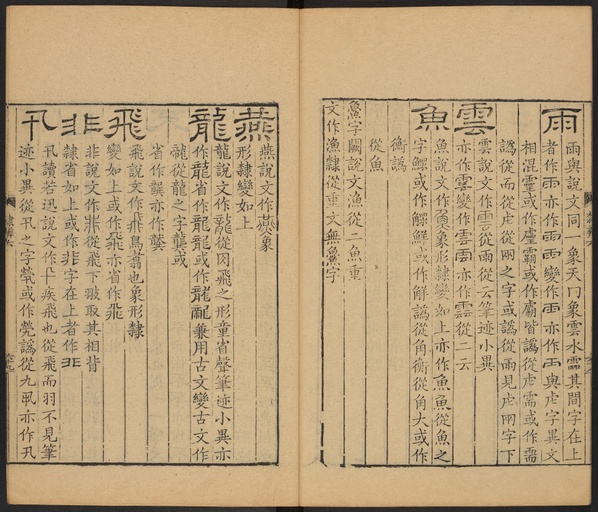 雨
雨與說文同一象天冂象雲水霝其間字在上
者作雨亦作雨雨變作雨亦作雨與虍字異文
相混靈或作霻霸或作霸皆譌從虍需或作需
譌從而從虍從兩之字或譌從雨見虍兩字下
雲
雲說文作雲從雨從云筆迹小異
亦作雲變作雲雲亦作雲從二云
魚
魚說文作魚象形隸變如上亦作魚魚從魚之
字鰥或作鰥鮮或作鮮譌從角衡從角大或作
衡譌
從魚
魚字闕說文漁從二魚重
文作漁隸從重文無字
燕
燕說文作燕象
形隸變如上
龍
龍說文作龍從肉飛之形童省聲筆迹小異亦
作龍省作龍龍或作龍兼用古文變古文作
龍從龍之字龔或
省作龔亦作龔
飛
飛說文作飛鳥翥也象形隸
變如上或作飛亦省作飛
非
非說文作非從飛下翄取其相背
隸省如上或作非字在上者作非
卂
卂讀若迅說文作卂疾飛也從飛而羽不見筆
迹小異從卂之字煢或作煢譌從九虱亦作卂